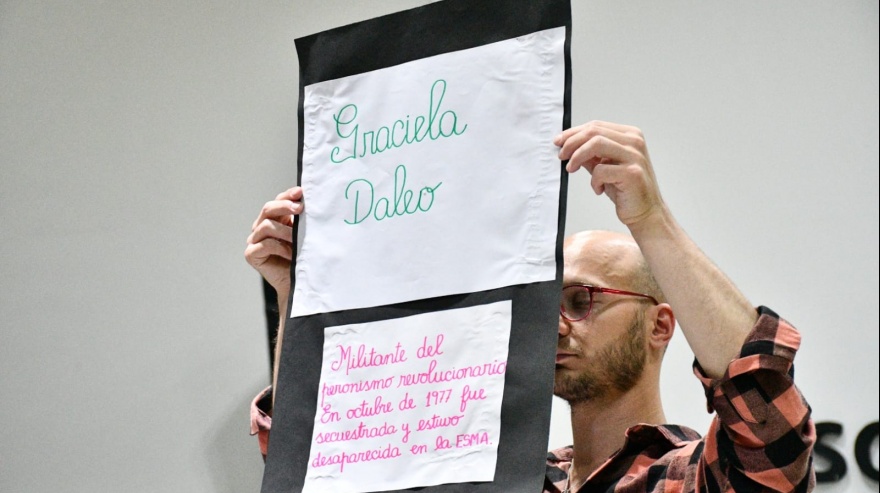 Graciela
Daleo
Militante del
peronismo revolucionario
En octubre de 1977 fue
secuestrada y estuvo
desaparecida en la ESMA.
so